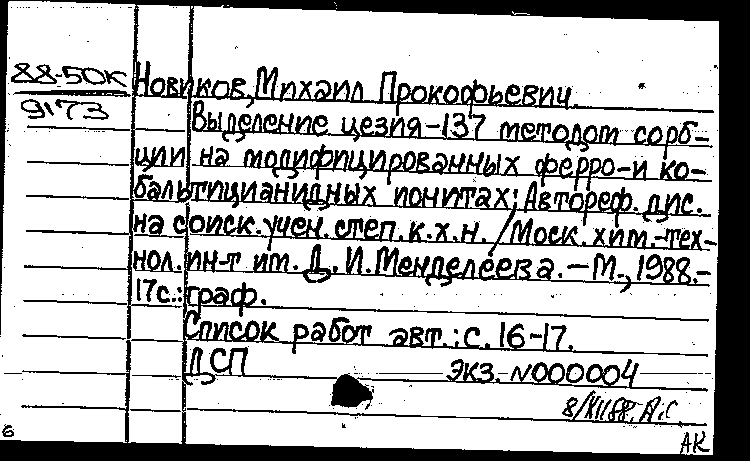 88-50К Новиков, Михаил Прокофьевич.
9173
Выделение цезия-137 методом сорб-
ции на модифицированных ферро-и ко-
бальтицианидных ионитах: Автореф. дис.
на соиск. учен. степ. к.х.н. / Моск. хим.-тех-
нол. ин-т им. Д. И. Менделеева. - М., 1988.-
17с.: граф.
Список работ авт.: с. 16-17.
ДСП Экз. N000004
8/XII88. А.С.
АК
6